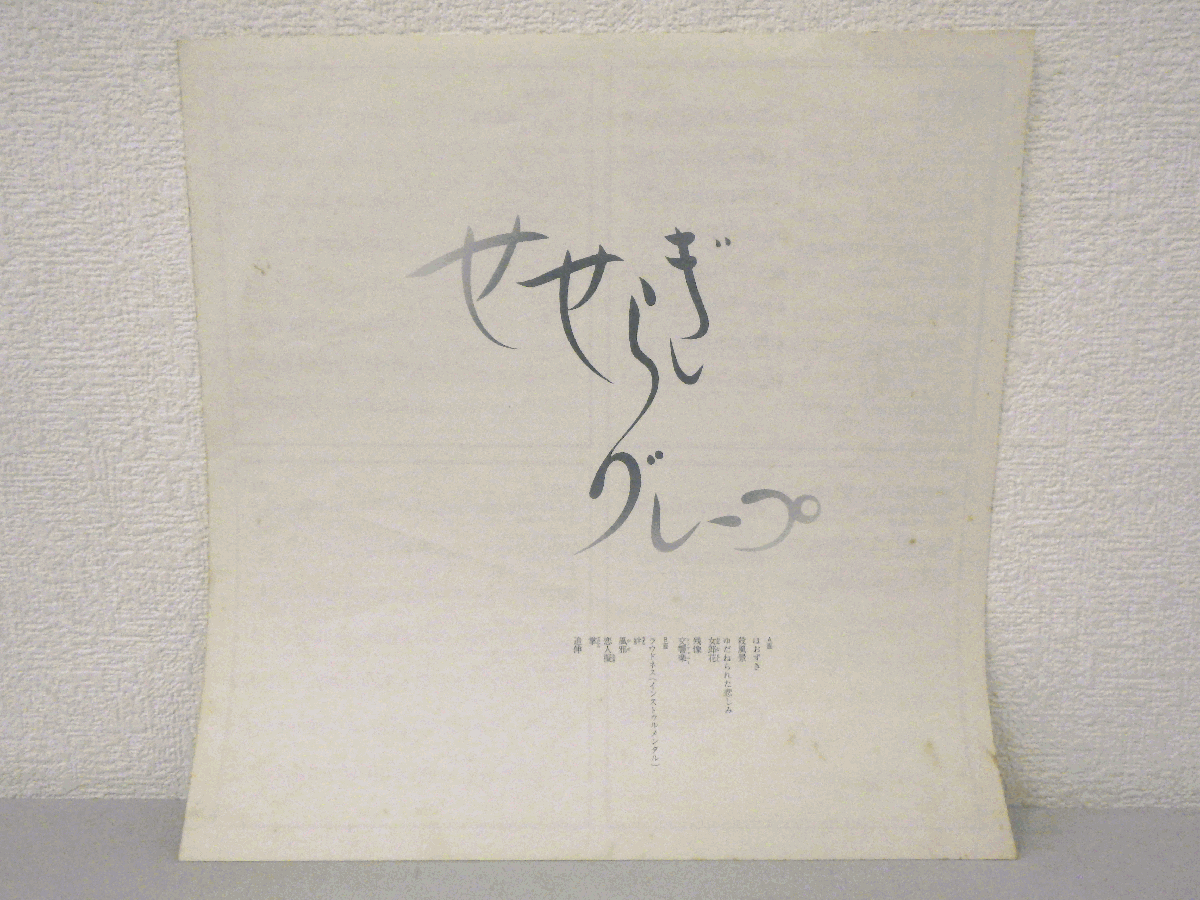 せせらぎ
グレープ
A面
ほおずき
殺風景
ゆだねられた悲しみ
女郎花
残像
交響楽
B面
ラウドネス(インストゥルメンタル)
絆
風邪
恋人擬
掌
追伸